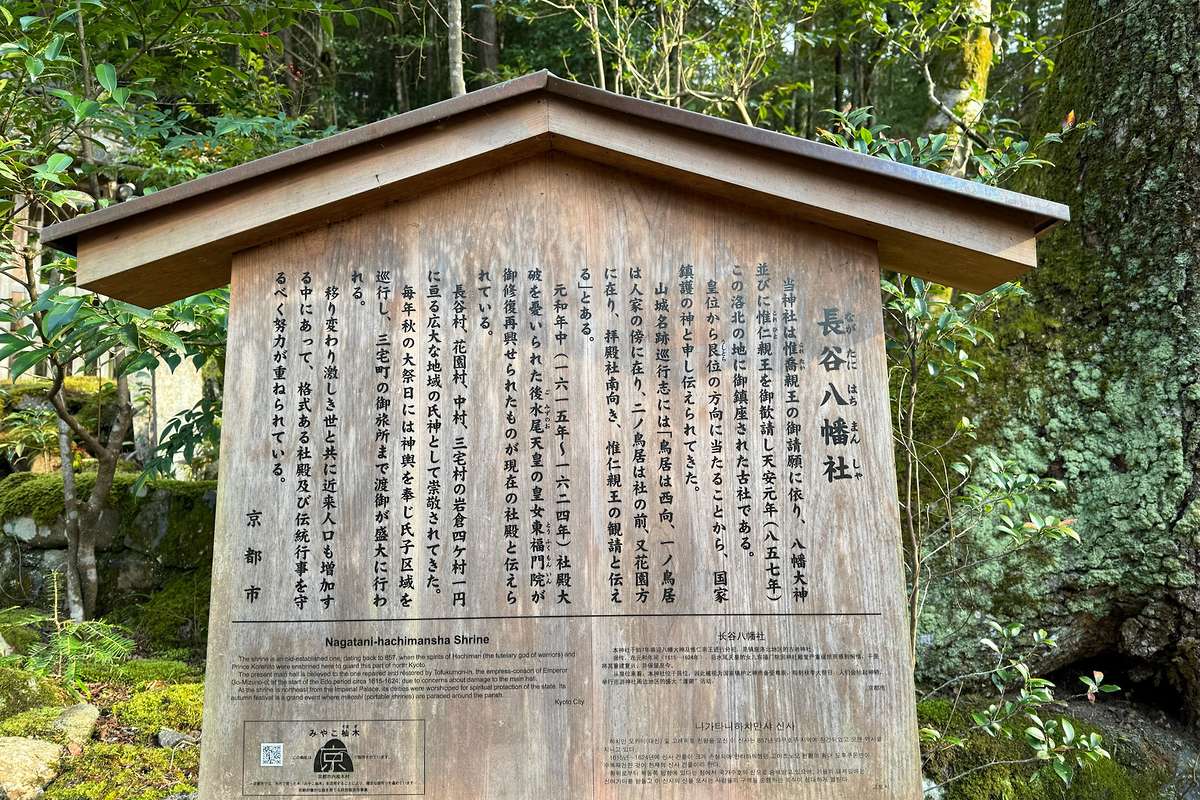 長谷八幡社
ながたにはちまんしゃ
当神社は惟喬親王の御請願に依り、八幡大神
並びに惟仁親王を御歓請し天安元年(八五七年)
この洛北の地に御鎮座された古社である。
皇位から艮位の方向に当たることから、国家
鎮護の神と申し伝えられてきた。
山城名跡巡行志には「鳥居は西向、一ノ鳥居
は人家の傍に在り、二ノ鳥居は社の前、又花園方
に在り、拝殿社南向き、惟仁親王の観請と伝え
る」とある。
元和年中(一六一五年〜一六二四年)社殿大
破を憂いられた後水尾天皇の皇女東福門院が
御修復再興せられたものが現在の社殿と伝えら
れている。
長谷村、花園村、中村、三宅村の岩倉四ケ村一円
に亘る広大な地域の氏神として崇敬されてきた。
毎年秋の大祭日には神輿を奉じ氏子区域を
巡行し、三宅町の御旅所まで渡御が盛大に行わ
れる。
移り変わり激しき世と共に近来人口も増加す
る中にあって、格式ある社殿及び伝統行事を守
るべく努力が重ねられている。
京都市
Nagatani-hachimansha Shrine
The shrine is an old-established one, dating back to 857, when the spirits of Hachiman (the tutelary god of warriors) and
Prince Korehito were enshrined here to guard this part of north Kyoto.
The present main hall is believed to the one repaired and restored by Tofukumon-in, the empress-consort of Emperor
Go-Mizuno-o, at the start of the Edo period in 1615-1624, due to concerns about damage to the main hall.
As the shrine is northeast from the Imperial Palace, its deities were worshipped for spiritual protection of the state. Its
autumn festival is a grand event where mikoshi (portable shrines) are paraded around the parish.
Kyoto City
长谷八幡社
京都市
니가타니하치만샤 신사
みやこ柚木
京